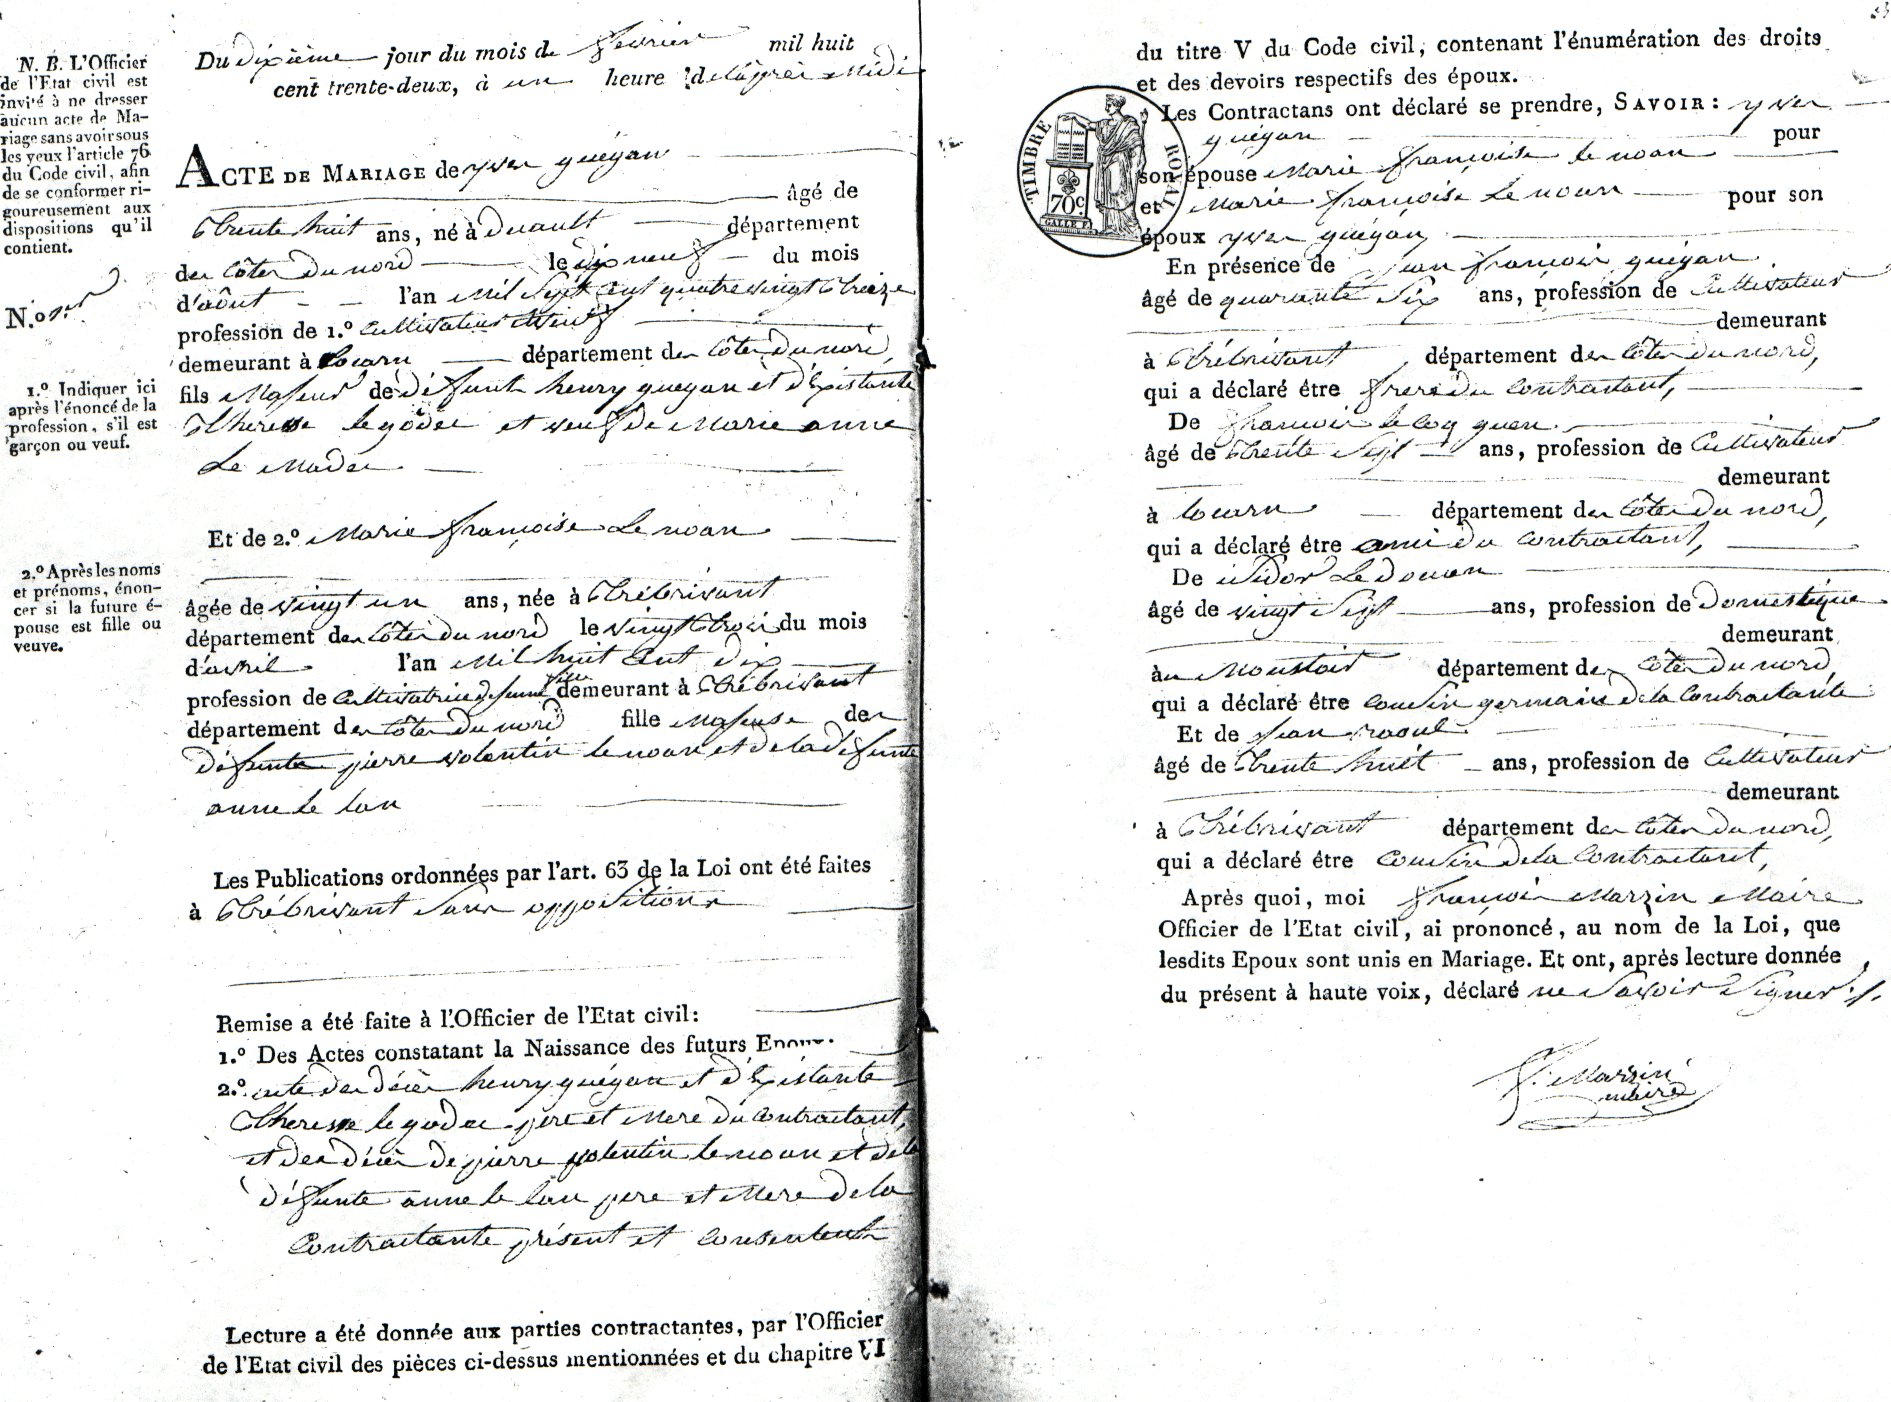 N. B. L'Officier
de l'Etat civil est
invité à ne dresser
aucun acte de Ma-
riage sans avoir sous
les yeux l'article 76
du Code civil, afin
de se conformer ri-
goureusement aux
dispositions qu'il
contient.
N.o 1.er
1.º Indiquer ici
après l'énoncé de la
profession, s'il est
garçon ou veuf.
2.º Après les noms
et prénoms, énon-
cer si la future é-
pouse est fille ou
veuve.
Du dixième jour du mois de fevrier mil huit
cent trente-deux, à un heure de l'après midi
ACTE DE MARIAGE de yves guégan
âgé de
trente huit ans, né à duault département
des côtes du nord le dix neuf du mois
d'août l'an mil sept cent quatre vingt treize
profession de 1.º cultivateur veuf
demeurant à locarn département des côtes du nord,
fils majeur de défunt henry guegan et d'Existante
therese le godec et veuf de marie anne
Le Madec
Et de 2.º Marie françoise Le noan
âgée de vingt un ans, née à trébrivant
département des côtes du nord le vingt trois du mois
d'avril l'an mil huit cent dix
profession de cultivatrice jeune fille demeurant à trébrivant
département des côtes du nord fille majeure des
défunte pierre valentin le noan et de la défunte
anne le lan
Les Publications ordonnées par l'art. 63 de la Loi ont été faites
à trébrivant sans oppositions
Remise a été faite à l'Officier de l'Etat civil:
1.º Des Actes constatant la Naissance des futurs Epoux.
2.º acte des décès henry guégan et d'Existante
therese le godec pere et mere du contractant,
et des décès de pierre valentin le noan et de la
défunte anne le lan pere et mere de la
contractante présent et consentent
Lecture a été donnée aux parties contractantes, par l'Officier
de l'Etat civil des pièces ci-dessus mentionnées et du chapitre VI
du titre V du Code civil, contenant l'énumération des droits
et des devoirs respectifs des époux.
TIMBRE ROYAL
70c.
Les Contractans ont déclaré se prendre, SAVOIR: yves
guégan pour
son épouse Marie françoise le noan
et Marie françoise Le noan pour son
époux yves guégan,
En présence de jean françois guégan
âgé de quarante six ans, profession de cultivateur
demeurant
à trébrivant département des côtes du nord,
qui a déclaré être frere du contractant,
De françois le coq guen
âgé de trente sept ans, profession de cultivateur
demeurant
à locarn département des côtes du nord,
qui a déclaré être ami du contractant,
De isidor Le douan
âgé de vingt sept ans, profession de domestique
demeurant
au moustoir département des côtes du nord,
qui a déclaré être cousin germain de la contractante
Et de jean raoul
âgé de trente huit ans, profession de cultivateur
demeurant
à trébrivant département des côtes du nord,
qui a déclaré être cousin de la contractant,
Après quoi, moi françois Marzin Maire
Officier de l'Etat civil, ai prononcé, au nom de la Loi, que
lesdits Epoux sont unis en Mariage. Et ont, après lecture donnée
du présent à haute voix, déclaré ne savoir signer ./.
f. Marzin
maire